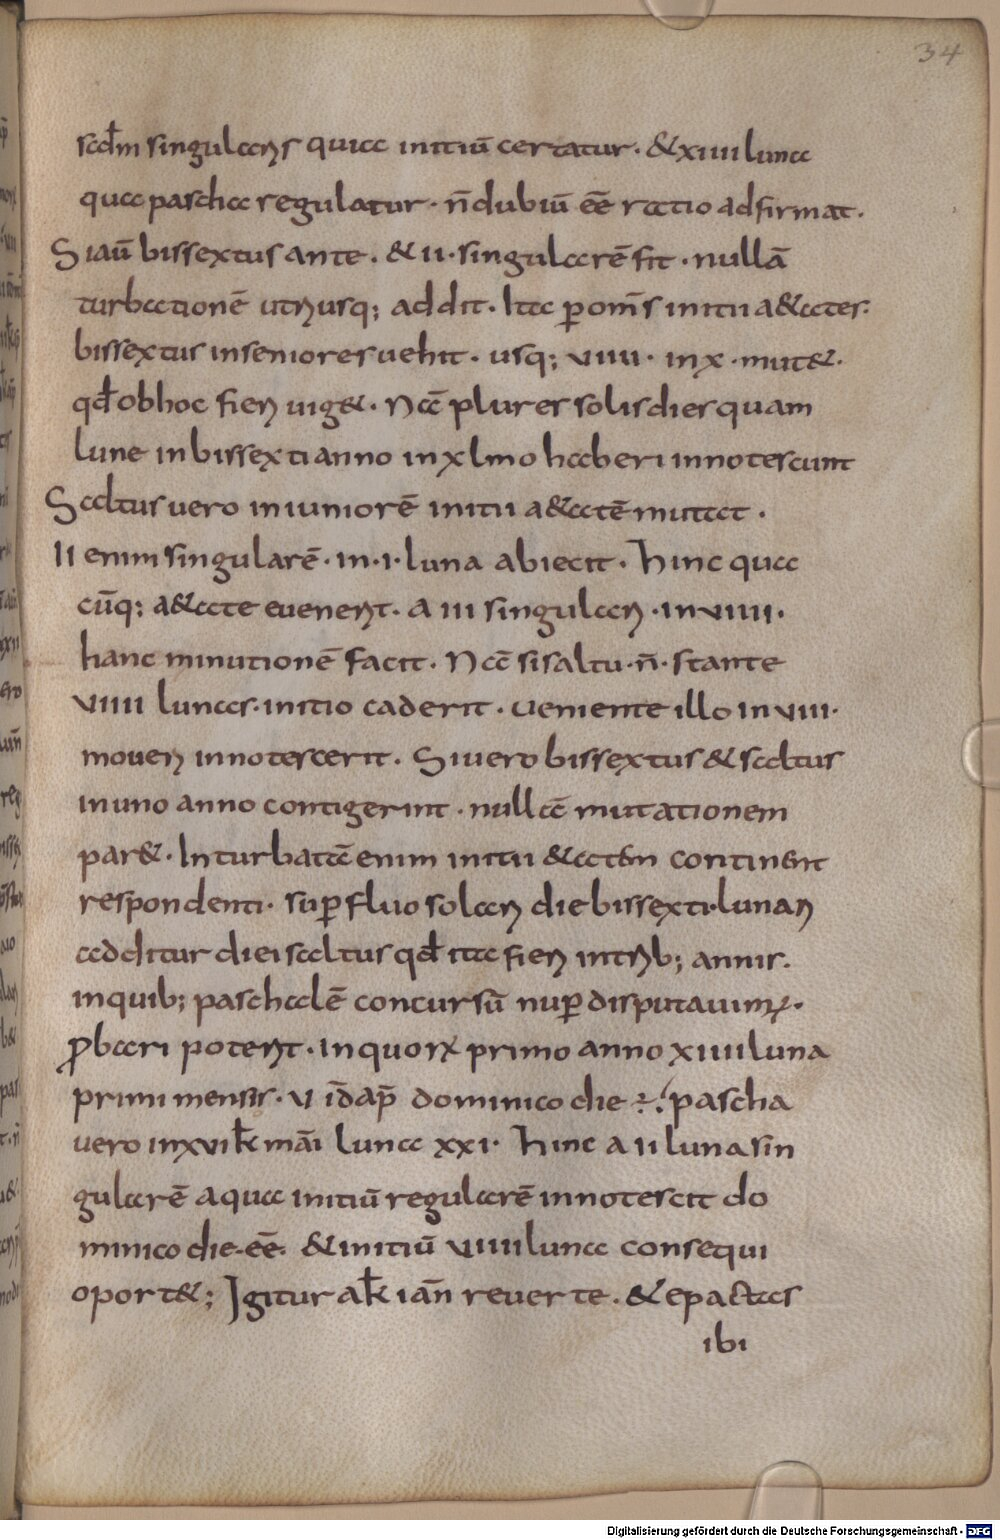 34
scdm singularis quia initiū certatur. &xiiii luna
qua pascha regulatur. n̄ dubiū eē ratio adfirmat.
Siaū bissextus ante. & ii. singularē fit. nullā
turbationē utriusq; addit. Ita p omīs initii a&ates.
bissextus inseniores uehit. usq; viiii. in x. mut&.
qđ obhoc fieri uig&. Na plures solis dies quam
lune inbissexti anno inxlmo haberi innotescunt
Saltus vero iniuniorē initii a&atē mutat.
II enim singularē. in. i. luna abiecit. hinc qua
cūq; a&ate euenerit. a iii singulari. inviiii.
hanc minutionē facit. Na si saltu. n̄. stante
viiii lunas. initio caderit. ueniente illo inviii.
moueri innotescerit. Si uero bissextus & saltus
inuno anno contigerint. nulla mutationem
par&. Inturbata enim initii &atem continent
respondenti. sup fluo solari die bissexti. lunari
additur diei saltus qđ ita fieri intrib; annis.
inquib; paschalē concursū nup disputauimus.
Probari poterit. inquorum primo anno xiiii luna
primi mensis. v id ap̄ dominico die ÷. pascha
vero inxvi k mai luna xxi. hinc a ii luna sin
gularē aqua initiū regularē innotescit do
minico die. eē. & initiū viiii luna consequi
oport&; Igitur ak ian̄ reuerte. & epactas
ibi
Digitalisierung gefördert durch die Deutsche Forschungsgemeinschaft - DFG